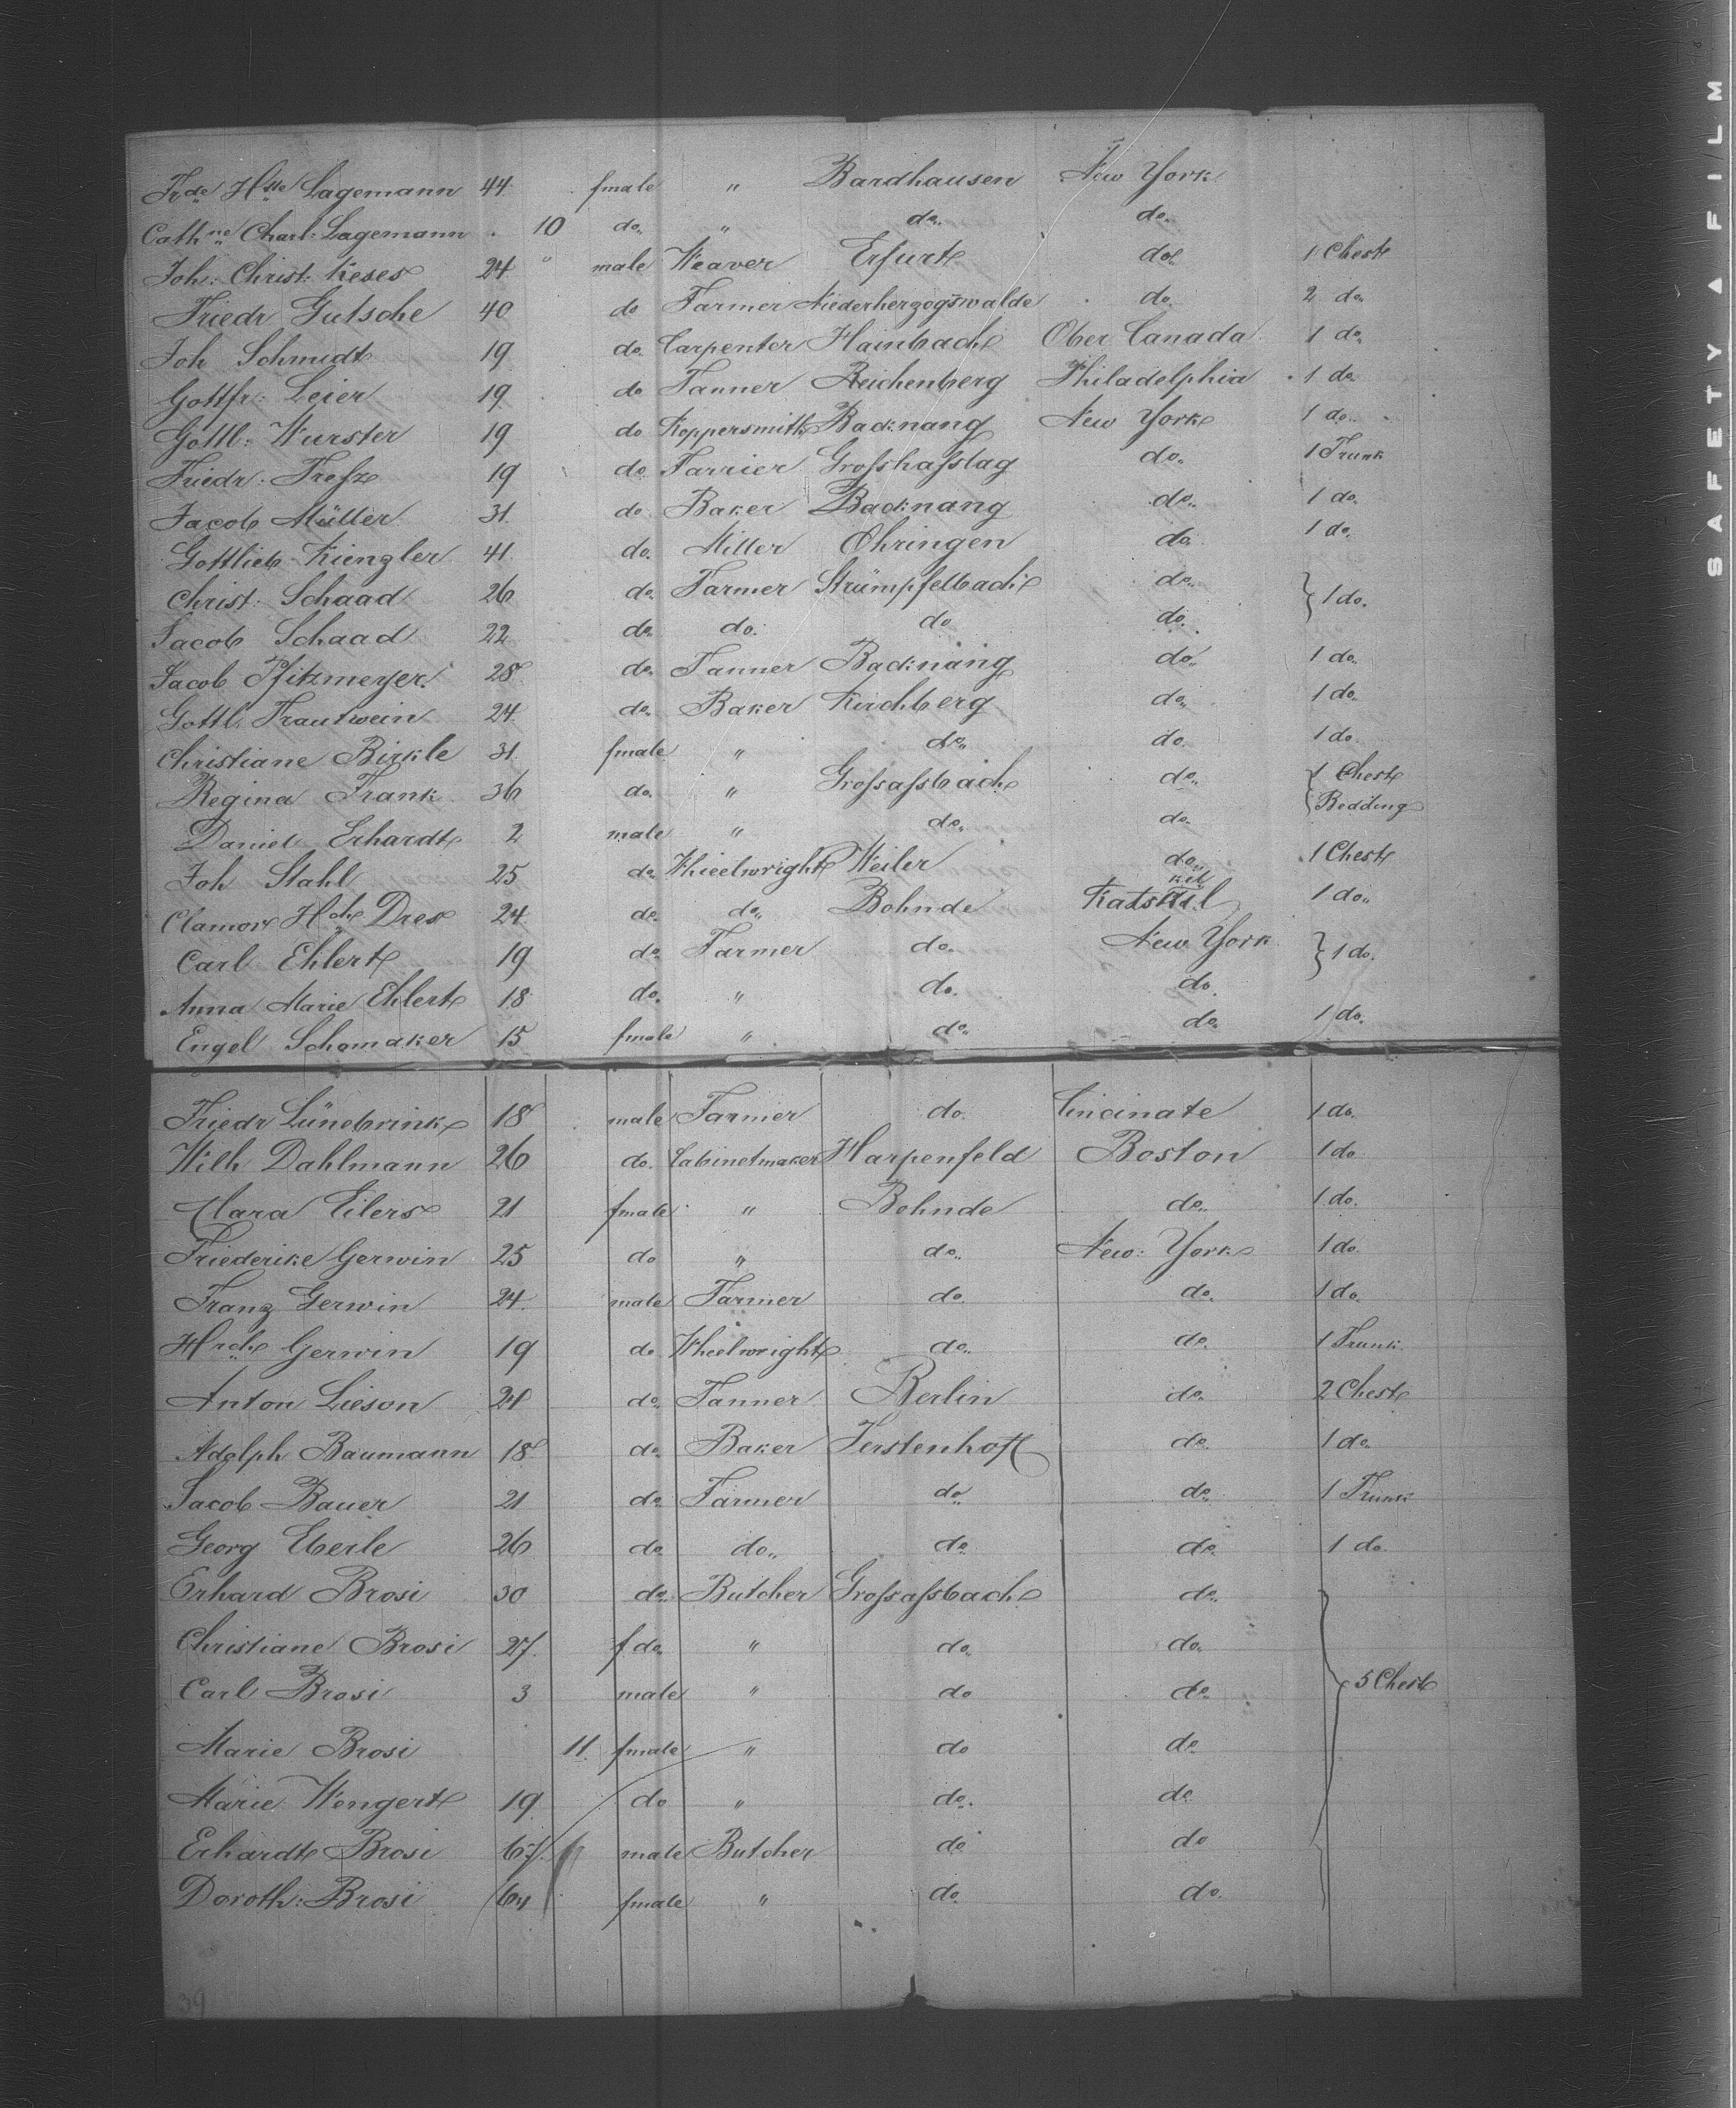 Frde Htte Lagemann 44 fmale " Bardhausen New York
Cathne Charl: Lagemann 10 do. " do. do.
Joh: Christ: Keses 24 " male Weaver Erfurt do. 1 Chest
Friedr Gutsche 40 do Farmer Niederherzogswalde do. 2 do.
Joh Schmidt 19 do. Carpenter Hainbach Ober Canada 1 do.
Gottfr: Leier 19 do Tanner Reichenberg Philadelphia 1 do.
Gottl: Wurster 19 do Koppersmith Backnang New York 1 do.
Friedr: Trefz 19 do Farrier Groshaslag do. 1 Trunk
Jacob Müller 31 do Baker Backnang do. 1 do.
Gottlieb Kienzler 41 do. Miller Ohringen do. 1 do.
Christ: Schaad 26 do. Farmer Strümpfelbach do. 1 do.
Jacob Schaad 22 do. do. do do.
Jacob Pfitzmeyer. 28 do. Tanner Backnang do. 1 do.
Gottl. Trautwein 24 do. Baker Kirchberg do. 1 do.
Christiane Birkle 31 fmale " do. do. 1 do.
Regina Frank 36 do. " Grossassbach do. 1 Chest
Bedding
Daniel Erhardt 2 male " do. do.
Joh Stahl 25 do. Whieelwright Weiler do. 1 Chest
kil
Clamor Hch Dres 24 do. do. Bohnde Katskil 1 do.
Carl Ehlert 19 do. Farmer do. New York 1 do.
Anna Marie Ehlert 18 do. " do. do.
Engel Schomaker 15 fmale " do. do. 1 do.
Friedr Lünebrink 18 male Farmer do. Cincinate 1 do.
Wilh Dahlmann 26 do. Cabinetmaker Harpenfeld Boston 1 do.
Clara Eilers 21 fmale " Bohnde do. 1 do.
Friederike Gerwin 25 do " do. New York 1 do.
Franz Gerwin 24. male Farmer do. do. 1 do.
Hrch Gerwin 19 do Wheelwright do. do. 1 Trunk
Anton Lieson 24 do. Tanner Berlin do. 2 Chest
Adolph Baumann 18 do. Baker Ferstenhoff do. 1 do.
Jacob Bauer 21 do. Farmer do. do. 1 Trunk
Georg Eberle 26 do. do. do. do. 1 do.
Erhard Brosi 30 do. Butcher Grossassbach do.
Christiane Brosi 27. f do. " do. do.
Carl Brosi 3 male " do do. 5 Chest
Marie Brosi 11 fmale " do do.
Marie Wengert 19 do " do. do
Erhardt Brosi 67. male Butcher do do
Doroth: Brosi 64 fmale " do. do.
39
SAFETY ▲ FILM